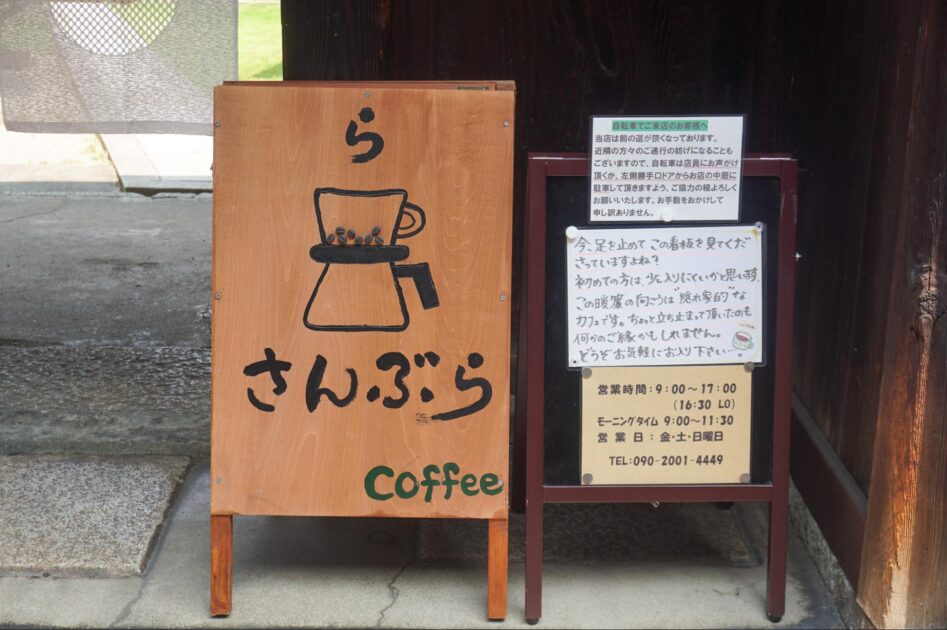 ら
さんぶら
coffee
自転車でご来店のお客様へ
当店は前の道が狭くなっております。
近隣の方々のご通行の妨げになることも
ございますので、自転車は店員にお声がけ
頂くか、左側勝手口ドアからお店の中庭に
駐車して頂きますよう、ご協力の程よろしく
お願いいたします。お手数をおかけして
申し訳ありません。
今、足を止めて この看板を見てくだ
さっていますよね?
初めての方は 少し入りにくいかと思います、
この暖簾の向こうは"隠れ家的"な
カフェです。ちょっと立ち止まって頂いたのも
何かのご縁かもしれません。
どうぞ お気軽にお入り下さい…。
営業時間:9:00〜17:00
(16:30 LO)
モーニングタイム 9:00〜11:30
営業日:金・土・日曜日
TEL:090-2001-4449